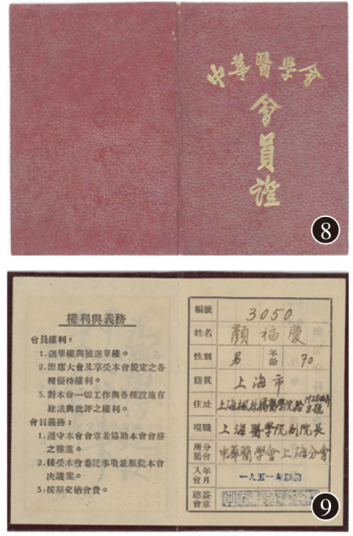 中華醫學会
會員證
8
權利與義務
會員權利：
1.選舉權與被選舉權。
2.出席大會及享受本會規定之各
種優待權利。
3.對本會一切工作與各種設施有
建議與批評之權利。
會員義務：
1.遵守本會會章並協助本會會務
之推進。
2.接受本會委託事項並服從本會
決議案。
3.按期交納會費。
編號 3050
姓名 顏福慶
性別 男 年齡 70
籍貫 上海市
住址 上海楓林橋醫學院路
現職 上海醫學院副院長
所屬分會 中華醫學會上海分會
入會年月 一九五一年以前
總會簽章
9